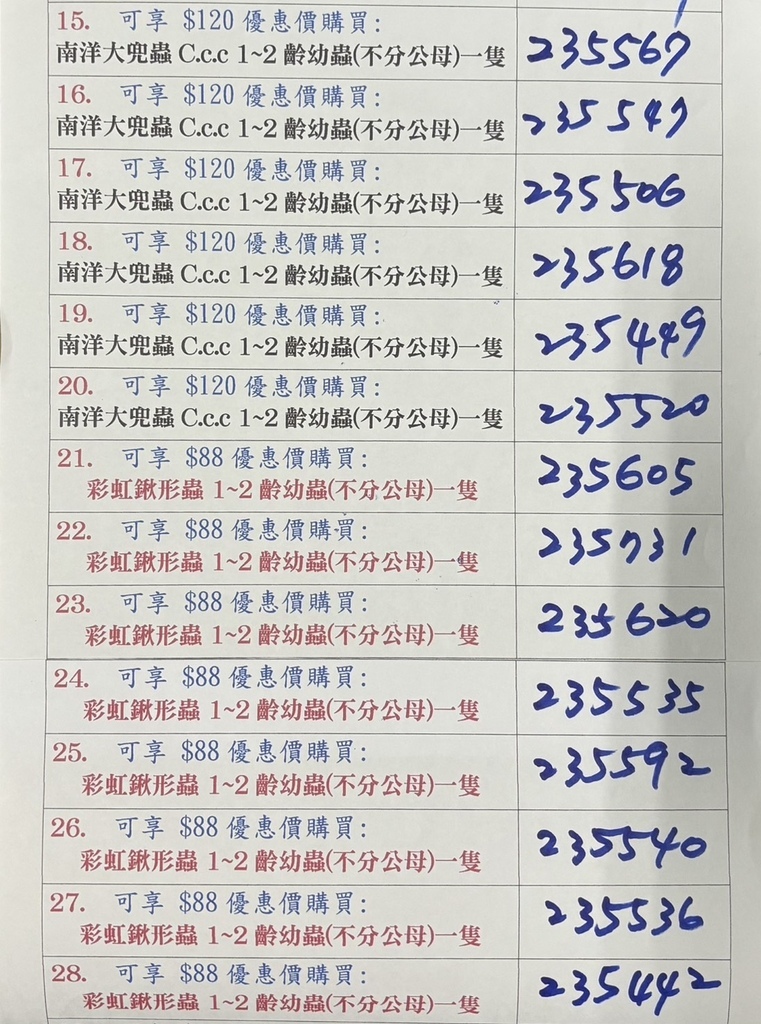 15. 可享 $120 優惠價購買:
南洋大兜蟲 C.c.c 1~2 齡幼蟲(不分公母)一隻
235567
16. 可享 $120 優惠價購買:
南洋大兜蟲 C.c.c 1~2 齡幼蟲(不分公母)一隻
235547
17. 可享 $120 優惠價購買:
南洋大兜蟲 C.c.c 1~2 齡幼蟲(不分公母)一隻
235506
18. 可享 $120 優惠價購買:
南洋大兜蟲 C.c.c 1~2 齡幼蟲(不分公母)一隻
235618
19. 可享 $120 優惠價購買:
南洋大兜蟲 C.c.c 1~2 齡幼蟲(不分公母)一隻
235449
20. 可享 $120 優惠價購買:
南洋大兜蟲 C.c.c 1~2 齡幼蟲(不分公母)一隻
235520
21. 可享 $88 優惠價購買:
彩虹鍬形蟲 1~2 齡幼蟲(不分公母)一隻
235605
22. 可享 $88 優惠價購買:
彩虹鍬形蟲 1~2 齡幼蟲(不分公母)一隻
235731
23. 可享 $88 優惠價購買:
彩虹鍬形蟲 1~2 齡幼蟲(不分公母)一隻
235620
24. 可享 $88 優惠價購買:
彩虹鍬形蟲 1~2 齡幼蟲(不分公母)一隻
235535
25. 可享 $88 優惠價購買:
彩虹鍬形蟲 1~2 齡幼蟲(不分公母)一隻
235592
26. 可享 $88 優惠價購買:
彩虹鍬形蟲 1~2 齡幼蟲(不分公母)一隻
235540
27. 可享 $88 優惠價購買:
彩虹鍬形蟲 1~2 齡幼蟲(不分公母)一隻
235536
28. 可享 $88 優惠價購買:
彩虹鍬形蟲 1~2 齡幼蟲(不分公母)一隻
235442